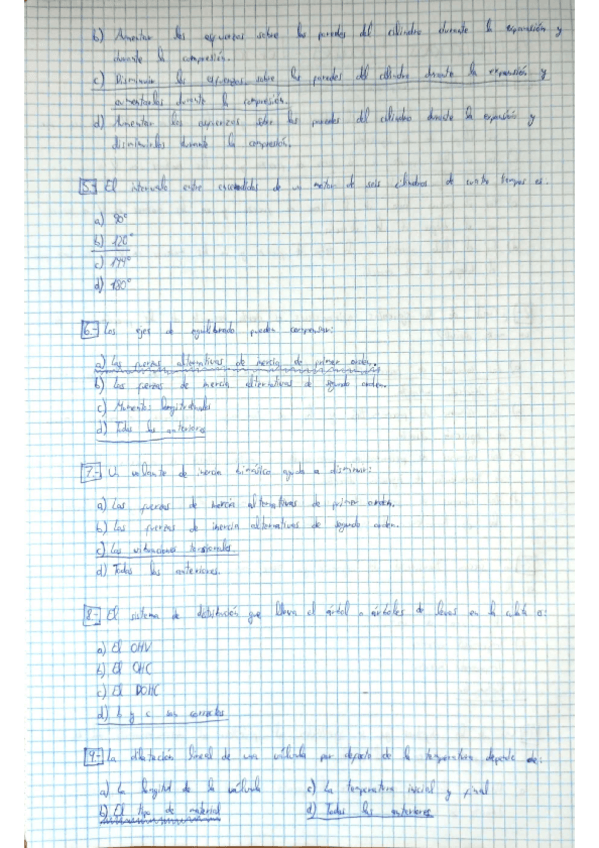 b) Aumentar los esfuerzos sobre las paredes del cilindro durante la expansión y
durante la compresión.
c) Disminuir los esfuerzos sobre las paredes del cilindro durante la expansión y
aumentarlos durante la compresión.
d) Aumentar los esfuerzos sobre las paredes del cilindro durante la expansión y
disminuirlos durante la compresión.
5.- El intervalo entre encendidos de un motor de seis cilindros de cuatro tiempos es:
a) 90°
b) 120°
c) 144°
d) 180°
6.- Los ejes de equilibrado pueden compensar:
a) Las fuerzas alternativas de inercia de primer orden.
b) Las fuerzas de inercia alternativas de segundo orden.
c) Momentos longitudinales
d) Todas las anteriores
7.- Un volante de inercia bimásico ayuda a disminuir:
a) Las fuerzas de inercia alternativas de primer orden.
b) Las fuerzas de inercia alternativas de segundo orden.
c) Las vibraciones torsionales.
d) Todas las anteriores.
8.- El sistema de distribución que lleva el árbol o árboles de levas en la culata es:
a) El OHV
b) El OHC
c) El DOHC
d) b y c son correctas
9.- La dilatación lineal de una válvula por efecto de la temperatura depende de:
a) La longitud de la válvula
b) El tipo de material
c) La temperatura inicial y final
d) Todas las anteriores